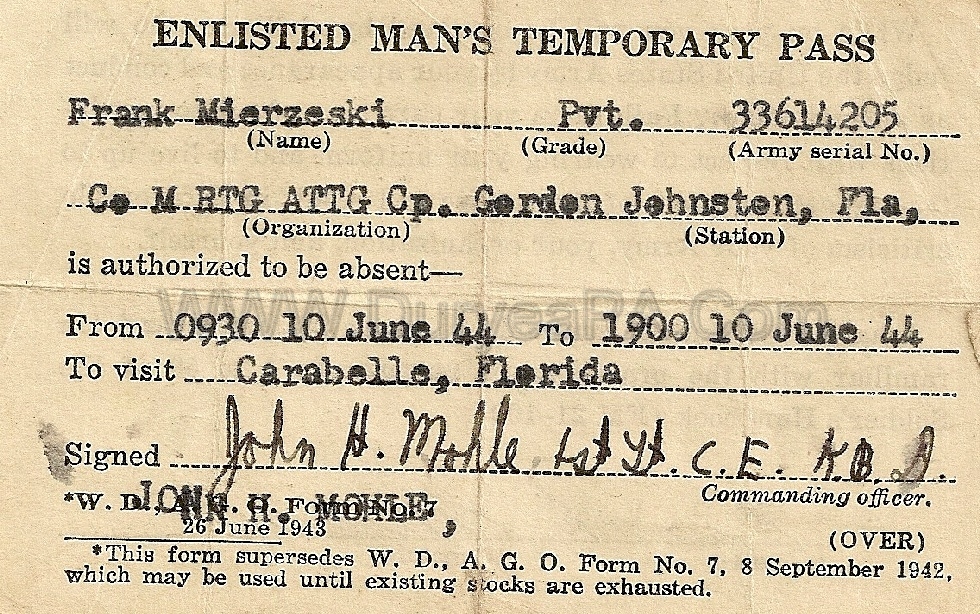 ENLISTED MAN'S TEMPORARY PASS
Frank Mierzeski Pvt. 33614205
(Name) (Grade) (Army serial No.)
Co M RTG ATTG Cp. Gordon Johnston, Fla,
(Organization) (Station)
is authorized to be absent—
WWW.DuryeaPA.Com
From 0930 10 June 44 To 1900 10 June 44
To visit Carabelle, Florida
Signed John H. Mohle 1st Lt. C. E.
Commanding officer.
*W. D., A. G. O. Form No. 7
H. MOHLE,
26 June 1943
(OVER)
*This form supersedes W. D., A. G. O. Form No. 7, 8 September 1942,
which may be used until existing stocks are exhausted.